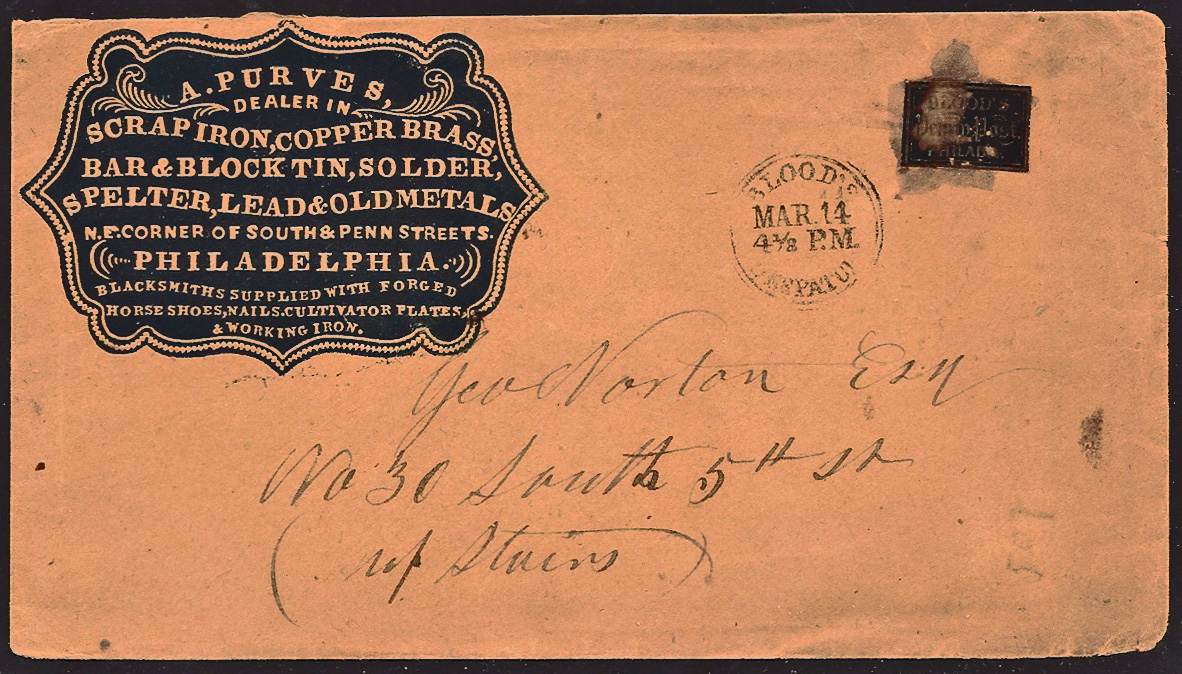 A. PURVES,
DEALER IN
SCRAP IRON, COPPER BRASS,
BAR & BLOCK TIN, SOLDER,
SPELTER, LEAD & OLD METALS
N.E. CORNER OF SOUTH & PENN STREETS.
PHILADELPHIA.
BLACKSMITHS SUPPLIED WITH FORGED
HORSE SHOES, NAILS, CULTIVATOR PLATES,
& WORKING IRON.
BLOOD'S
Penny Post,
PHILADA.
BLOOD'S
MAR. 14
4½ P.M.
Geo Norton Esq
No 30 South 5th st
(up Stairs)